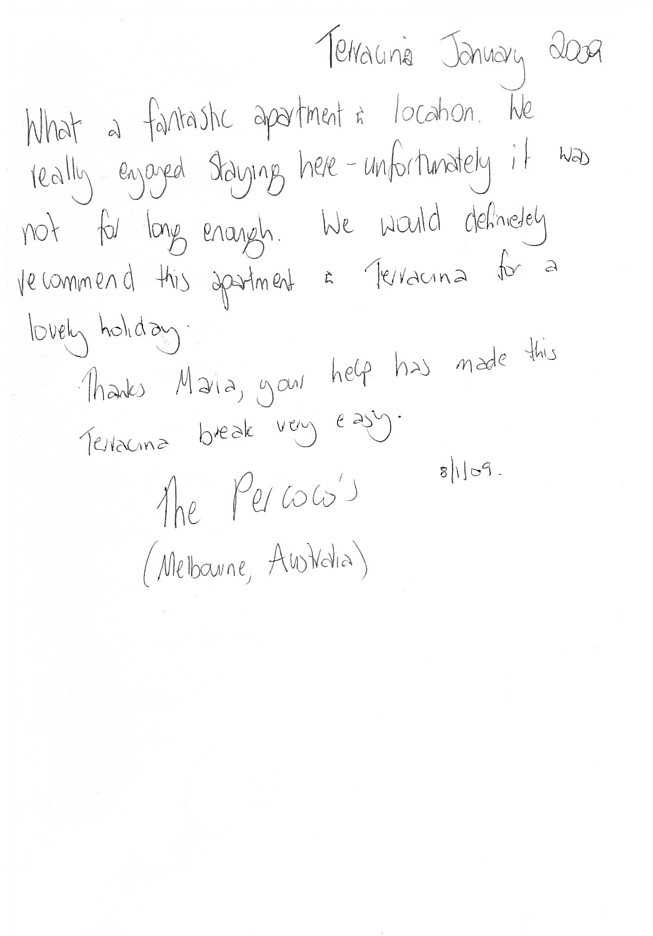 Terracina January 2009
What a fantastic apartment & location. We
really enjoyed staying here - unfortunately it was
not for long enough. We would definietely
recommend this apartment & Terracina for a
lovely holiday.
Thanks Maria, your help has made this
Terracina break very easy.
The Percoco's 8/1/09.
(Melbourne, Australia)